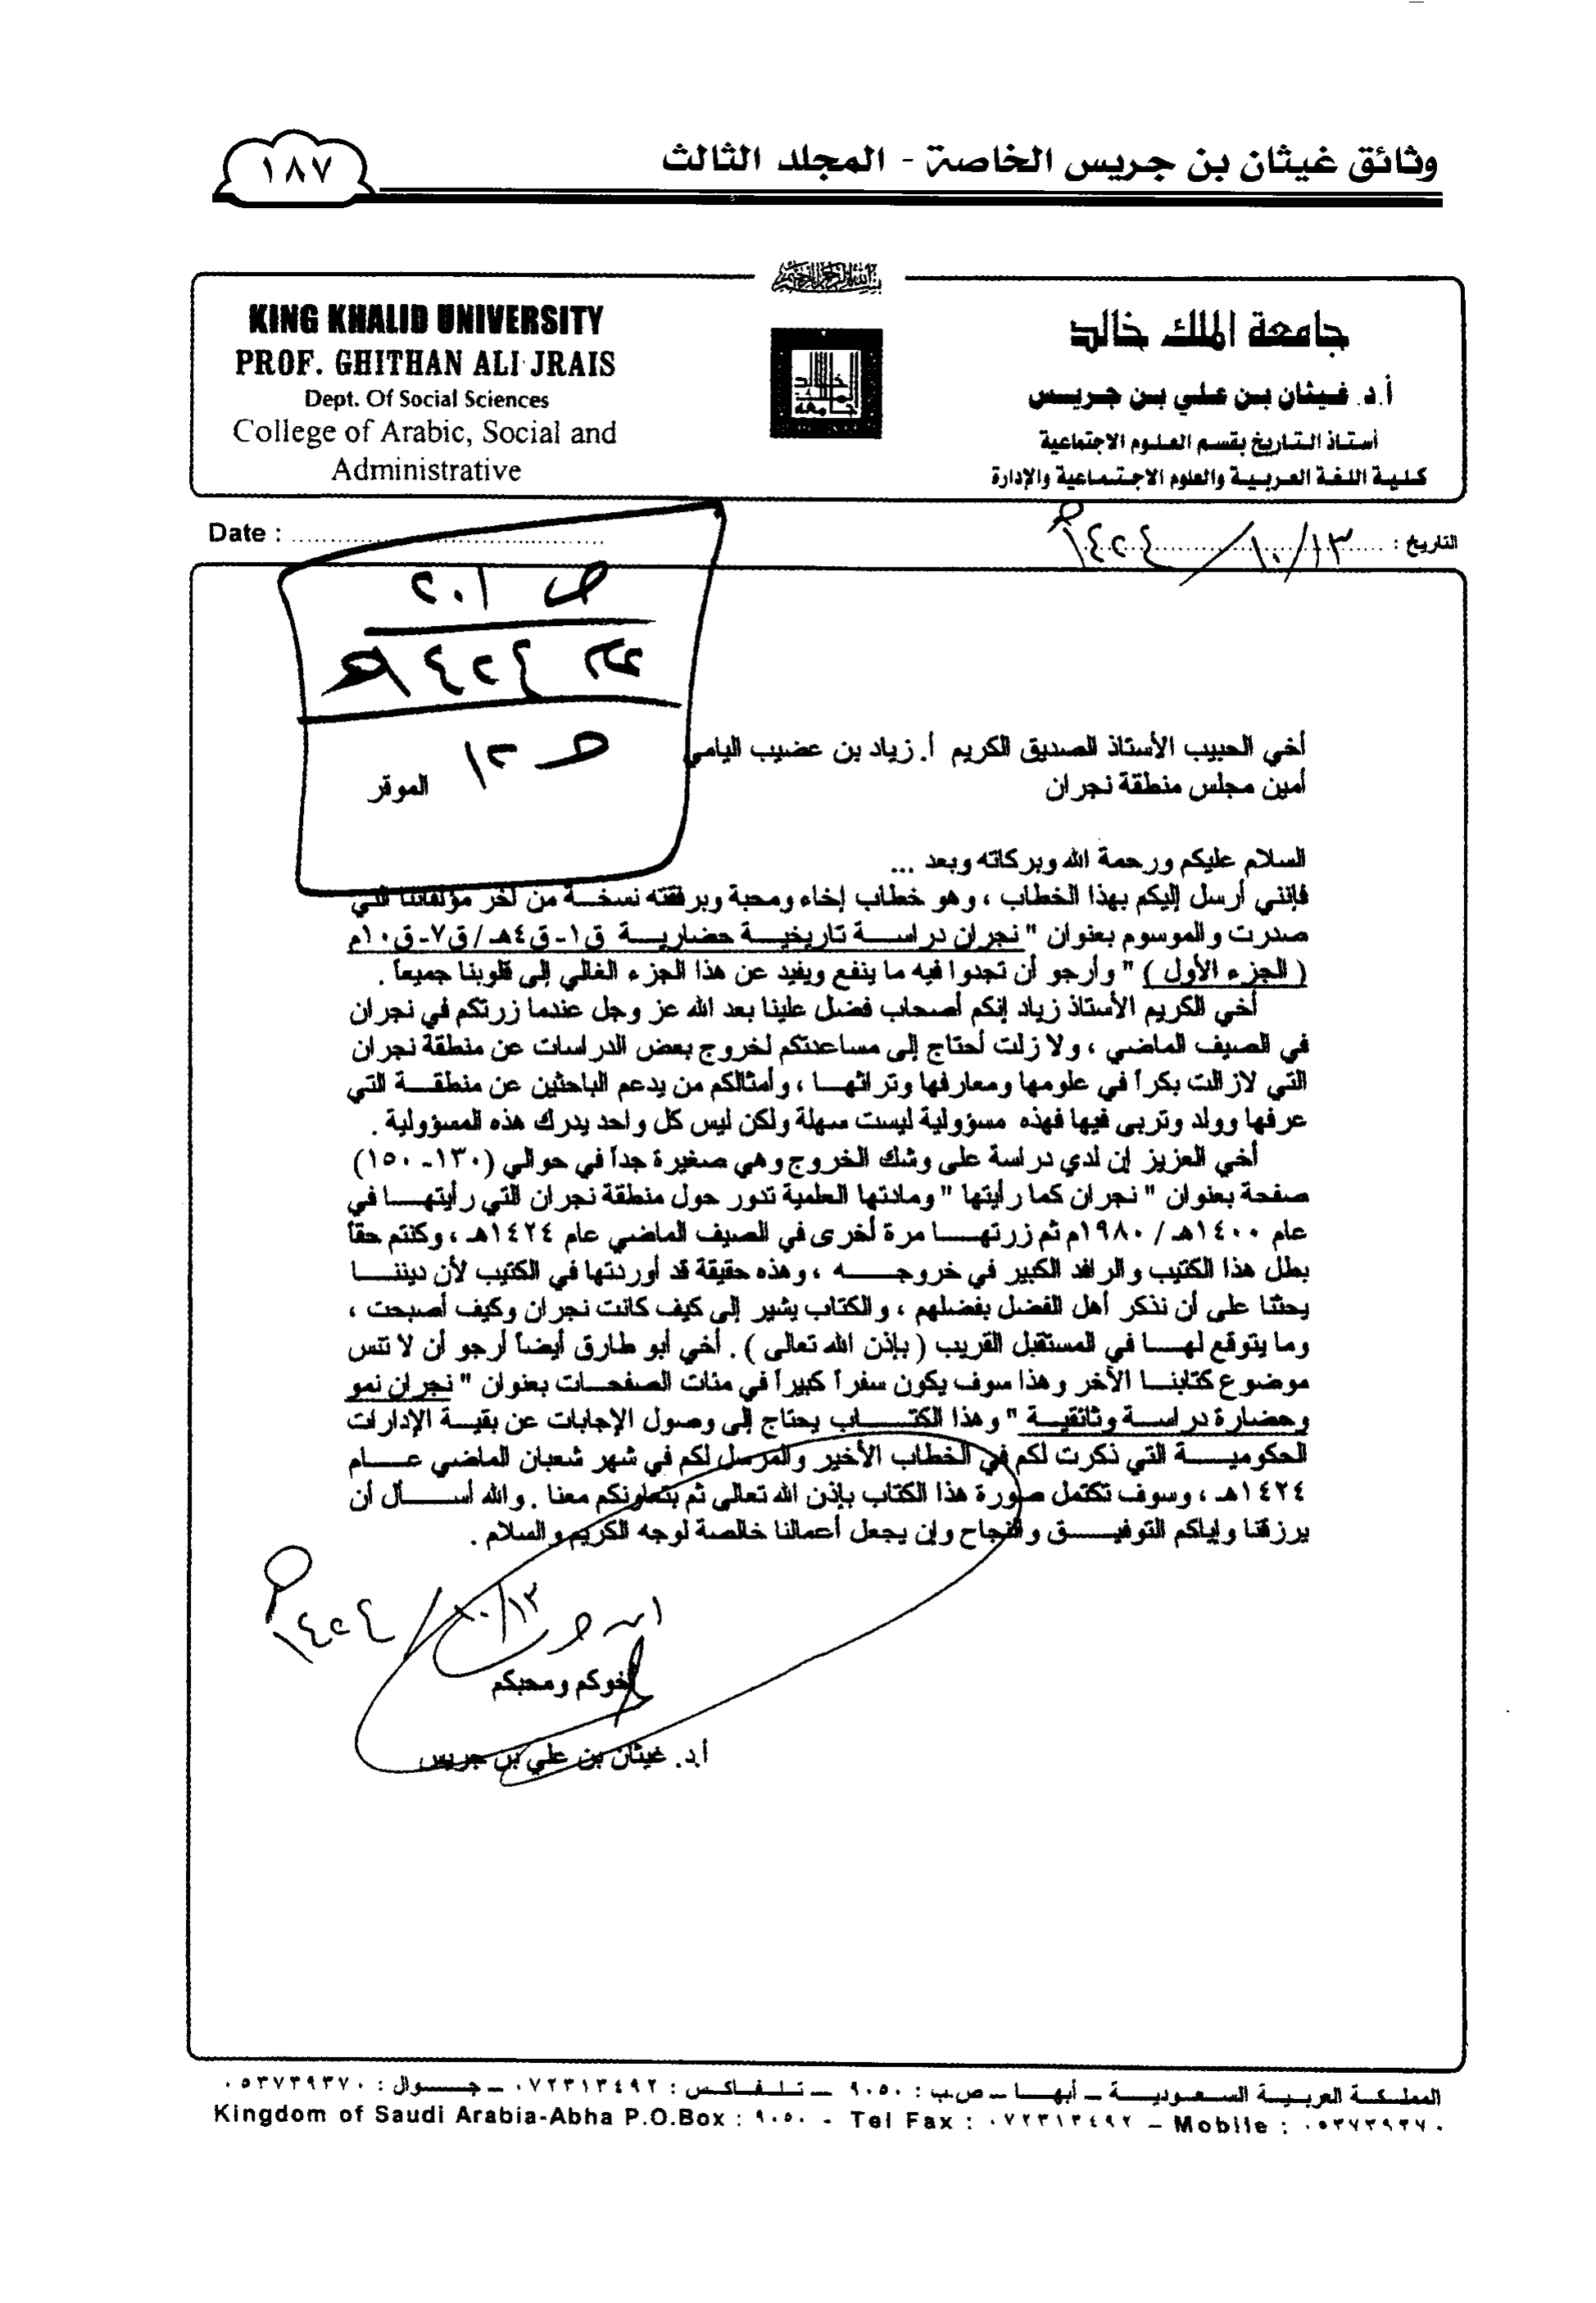 وثائق غيثان بن جريس الخاصة - المجلد الثالث
١٨٧
بسم الله الرحمن الرحيم
KING KHALID UNIVERSITY
PROF. GHITHAN ALI JRAIS
Dept. Of Social Sciences
College of Arabic, Social and
Administrative
جامعة الملك خالد
أ.د. غيثان بن علي بن جريس
أستاذ التاريخ بقسم العلوم الاجتماعية
كلية اللغة العربية والعلوم الاجتماعية والإدارة
Date : ..............................
التاريخ : ١٣/١٠/١٤٢٤هـ
ص ٢٠١
١٤٢٤هـ
ص ١٣
أخي الحبيب الأستاذ الصديق الكريم أ. زياد بن عضيب اليامي
أمين مجلس منطقة نجران الموقر
السلام عليكم ورحمة الله وبركاته وبعد ...
فإنني أرسل إليكم بهذا الخطاب ، وهو خطاب إخاء ومحبة وبرفقته نسخة من آخر مؤلفاتنا التي
صدرت والموسوم بعنوان " نجران دراسة تاريخية حضارية ق١-ق٤هـ/ق٧-ق١٠م
( الجزء الأول ) " وأرجو أن تجدوا فيه ما ينفع ويفيد عن هذا الجزء الغالي إلى قلوبنا جميعاً .
أخي الكريم الأستاذ زياد إنكم أصحاب فضل علينا بعد الله عز وجل عندما زرتكم في نجران
في الصيف الماضي ، ولا زلت أحتاج إلى مساعدتكم لخروج بعض الدراسات عن منطقة نجران
التي لازالت بكراً في علومها ومعارفها وتراثها ، وأمثالكم من يدعم الباحثين عن منطقة التي
عرفها وولد وتربى فيها فهذه مسؤولية ليست سهلة ولكن ليس كل واحد يدرك هذه المسؤولية .
أخي العزيز إن لدي دراسة على وشك الخروج وهي صغيرة جداً في حوالي (١٣٠-١٥٠)
صفحة بعنوان " نجران كما رأيتها " ومادتها العلمية تدور حول منطقة نجران التي رأيتها في
عام ١٤٠٠هـ/ ١٩٨٠م ثم زرتها مرة أخرى في الصيف الماضي عام ١٤٢٤هـ ، وكنتم حقاً
بطل هذا الكتيب والرافد الكبير في خروجه ، وهذه حقيقة قد أوردتها في الكتيب لأن ديننا
يحثنا على أن نذكر أهل الفضل بفضلهم ، والكتاب يشير إلى كيف كانت نجران وكيف أصبحت ،
وما يتوقع لها في المستقبل القريب ( بإذن الله تعالى ) . أخي أبو طارق أيضاً أرجو أن لا تنس
موضوع كتابنا الآخر وهذا سوف يكون سفراً كبيراً في مئات الصفحات بعنوان " نجران نمو
وحضارة دراسة وثائقية " وهذا الكتاب يحتاج إلى وصول الإجابات عن بقية الإدارات
الحكومية التي ذكرت لكم في الخطاب الأخير والمرسل لكم في شهر شعبان الماضي عام
١٤٢٤هـ ، وسوف تكتمل صورة هذا الكتاب بإذن الله تعالى ثم بتعاونكم معنا . والله أسأل أن
يرزقنا وإياكم التوفيق والنجاح وإن يجعل أعمالنا خالصة لوجه الكريم والسلام .
١٣/١٠/١٤٢٤هـ
أخوكم ومحبكم
أ.د. غيثان بن علي بن جريس
المملكة العربية السعودية – أبها – ص.ب : ٩٠٥٠ – تلفاكس : ٠٧٢٣١٣٤٩٢ – جوال : ٠٥٣٧٣٩٣٧٠
Kingdom of Saudi Arabia-Abha P.O.Box : ٩٠٥٠ - Tel Fax : ٠٧٢٣١٣٤٩٢ – Mobile : ٠٥٣٧٣٩٣٧٠